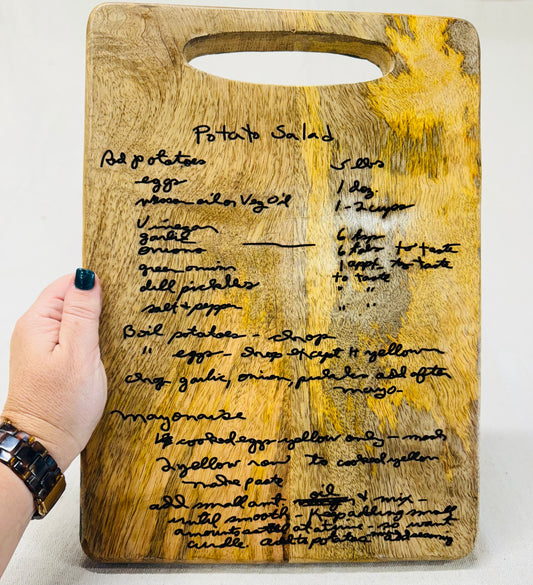 Potato Salad
Rd potatoes 5 lbs
eggs 1 doz.
wesson oil or Veg Oil 1-2 cups
Vinegar
garlic 6 to taste
onions 1 to taste
green onion to taste
dill pickles " "
salt + pepper " "
Boil potatoes - chop
" eggs - chop except 4 yellow
chop garlic, onion, pickles add after
mayo-
Mayonaise
4 cooked eggs yellow only - mash
2 yellow raw to cooked yellow
make paste
add small amt oil & mix -
until smooth - Keep adding small
amounts at a time - so wont
curdle add to potatoes